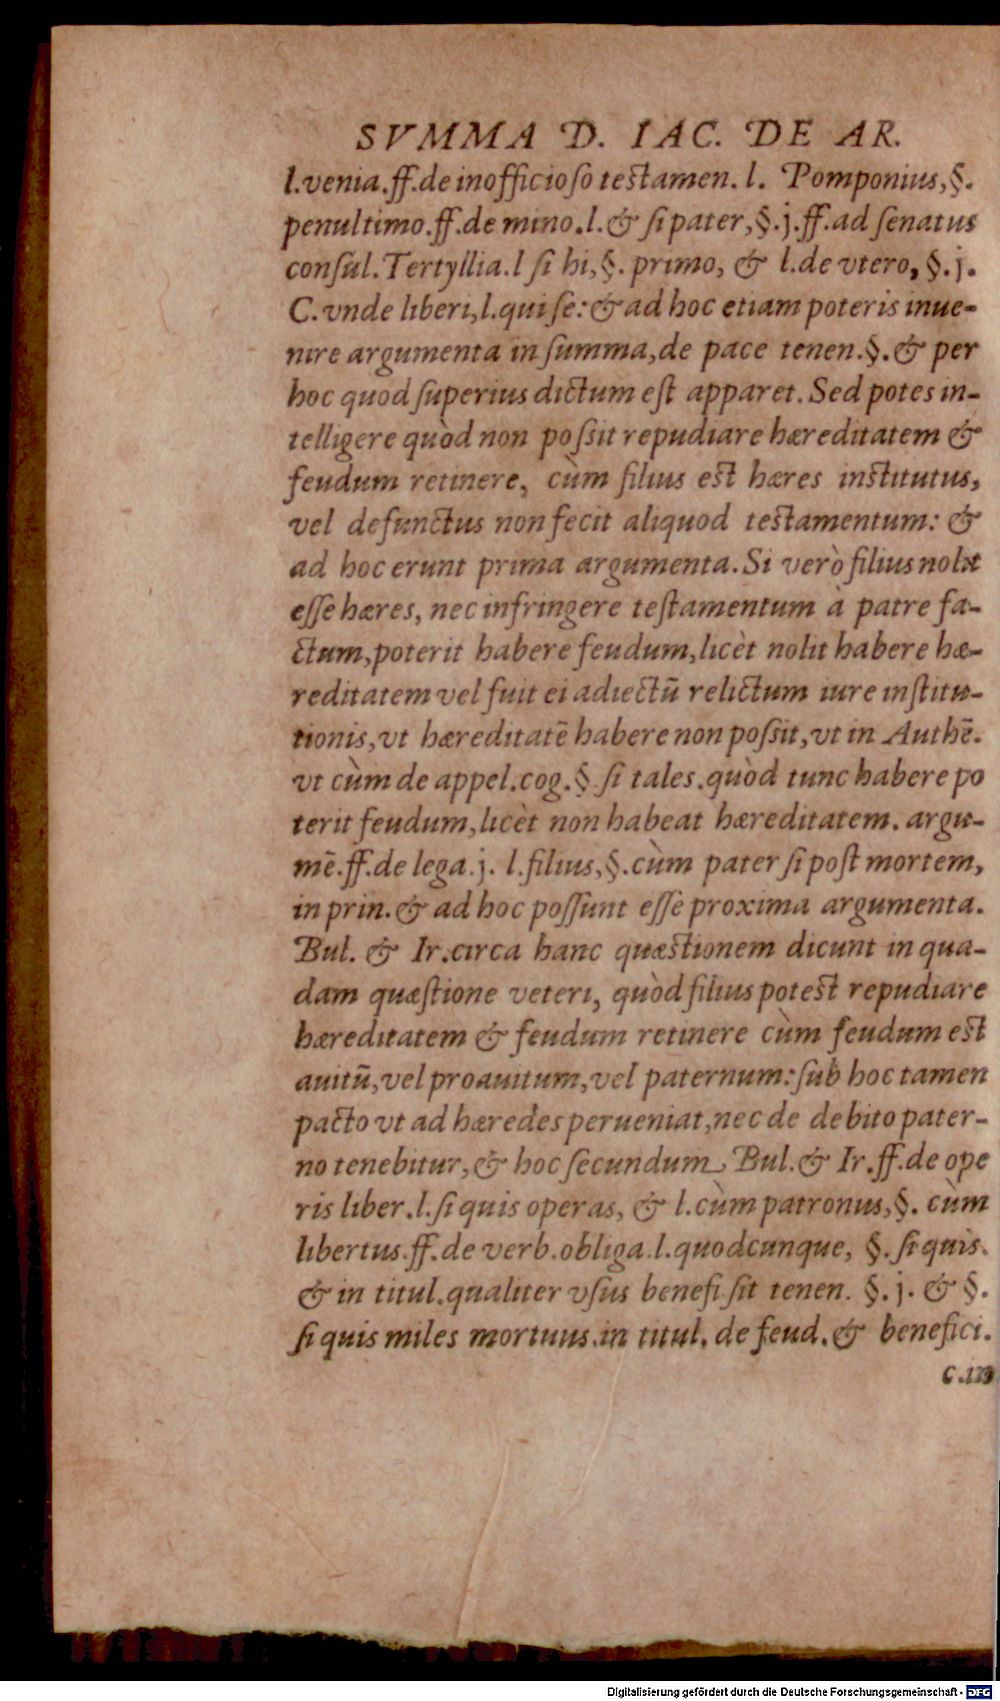 SVMMA D. IAC. DE AR.
l.venia.ff.de inofficioſo teſtamen. l. Pomponius, §.
penultimo.ff.de mino.l.& ſi pater, §.j.ff.ad ſenatus
conſul.Tertyllia.l ſi hi, §. primo, & l.de vtero, §.j.
C.vnde liberi,l.qui ſe: & ad hoc etiam poteris inue-
nire argumenta in ſumma,de pace tenen.§.& per
hoc quod ſuperius dictum eſt apparet. Sed potes in-
telligere quòd non poſsit repudiare hæreditatem &
feudum retinere, cùm filius eſt hæres inſtitutus,
vel defunctus non fecit aliquod teſtamentum: &
ad hoc erunt prima argumenta. Si verò filius nolit
eſſe hæres, nec infringere teſtamentum à patre fa-
ctum,poterit habere feudum,licèt nolit habere hæ-
reditatem vel fuit ei adiectũ relictum iure inſtitu-
tionis,vt hæreditatẽ habere non poſsit,vt in Authẽ.
vt cùm de appel.cog.§ ſi tales.quòd tunc habere po
terit feudum,licèt non habeat hæreditatem. argu-
mẽ.ff.de lega.j. l.filius,§.cùm pater ſi poſt mortem,
in prin.& ad hoc poſſunt eſſe proxima argumenta.
Bul. & Ir.circa hanc quæſtionem dicunt in qua-
dam quæſtione veteri, quòd filius poteſt repudiare
hæreditatem & feudum retinere cùm feudum eſt
auitũ,vel proauitum,vel paternum:ſub hoc tamen
pacto vt ad hæredes perueniat,nec de debito pater-
no tenebitur,& hoc ſecundum Bul.& Ir.ff.de ope
ris liber.l.ſi quis operas, & l.cùm patronus,§. cùm
libertus.ff.de verb.obliga.l.quodcunque, §.ſi quis.
& in titul.qualiter vſus benefi ſit tenen. §.j. & §.
ſi quis miles mortuus.in titul. de feud.& benefici.
c.in
Digitalisierung gefördert durch die Deutsche Forschungsgemeinschaft - DFG